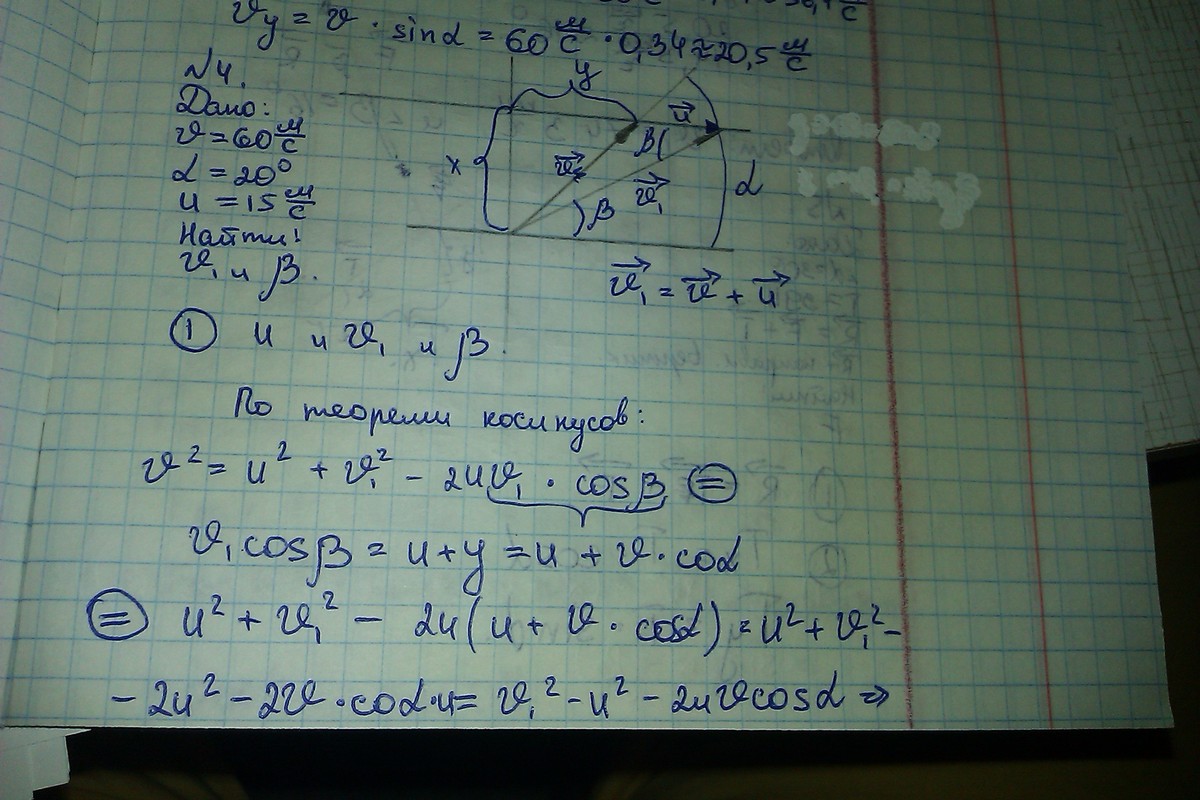 𝜗y = 𝜗 · sinα = 60 м/с · 0,34 ≈ 20,5 м/с
N4.
Дано:
𝜗 = 60 м/с
α = 20°
u = 15 м/с
Найти:
𝜗₁ и β.
y
x
u
β
𝜗
𝜗₁
β
α
𝜗₁ = 𝜗 + u
① u и 𝜗₁ и β.
По теореми косинусов:
𝜗² = u² + 𝜗₁² - 2u𝜗₁ · cosβ ⊜
𝜗₁cosβ = u + y = u + 𝜗 · coα
⊜ u² + 𝜗₁² - 2u(u + 𝜗 · cosα) = u² + 𝜗₁² -
- 2u² - 2𝜗 · coα · u = 𝜗₁² - u² - 2u𝜗cosα ⇒